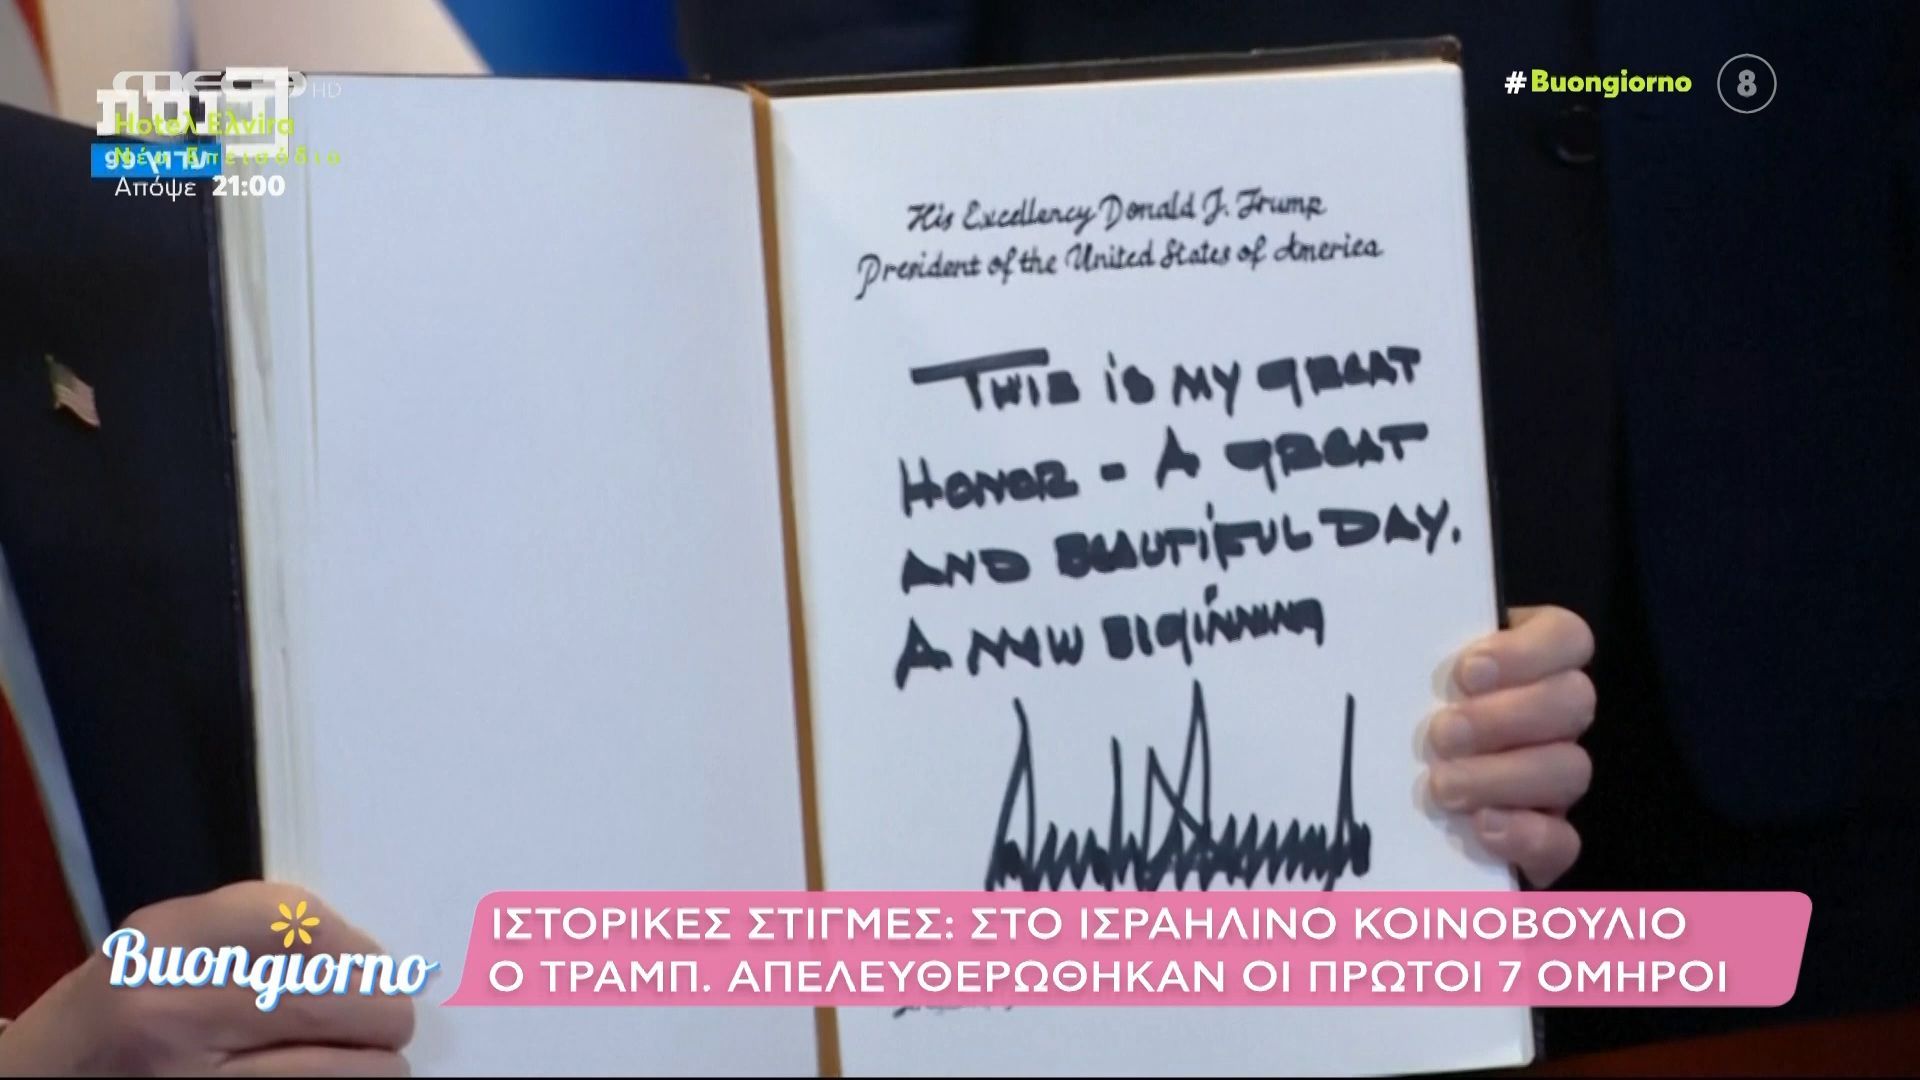 mega HD
הכנסת
Hotel Ελvira
Νέα Επεισόδια
ערוץ 99
Απόψε 21:00
#Buongiorno 8
His Excellency Donald J. Trump
President of the United States of America
THIS is MY GREAT
HONOR - A GREAT
AND BEAUTiFUL DAY.
A NEW BEGiNNING
Buongiorno
ΙΣΤΟΡΙΚΕΣ ΣΤΙΓΜΕΣ: ΣΤΟ ΙΣΡΑΗΛΙΝΟ ΚΟΙΝΟΒΟΥΛΙΟ
Ο ΤΡΑΜΠ. ΑΠΕΛΕΥΘΕΡΩΘΗΚΑΝ ΟΙ ΠΡΩΤΟΙ 7 ΟΜΗΡΟΙ